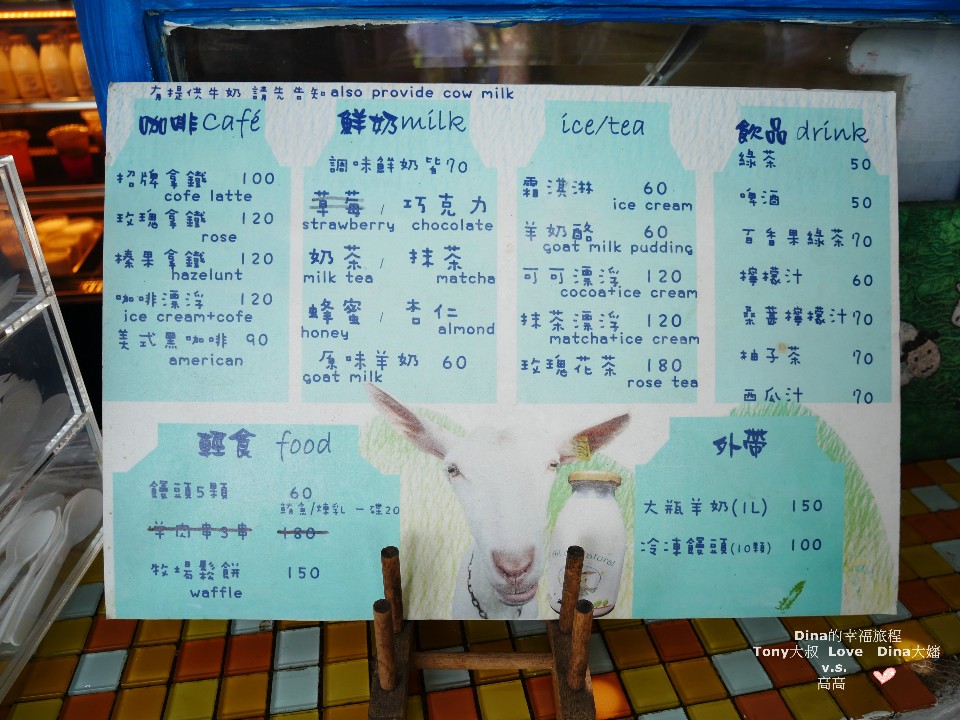 有提供牛奶 請先告知 also provide cow milk
咖啡 café
招牌拿鐵 100
cofe latte
玫瑰拿鐵 120
rose
榛果拿鐵 120
hazelunt
咖啡漂浮 120
ice cream+cofe
美式黑咖啡 90
american
鮮奶 milk
調味鮮奶皆70
草莓 / 巧克力
strawberry chocolate
奶茶 / 抹茶
milk tea matcha
蜂蜜 / 杏仁
honey almond
原味羊奶 60
goat milk
ice/tea
霜淇淋 60
ice cream
羊奶酪 60
goat milk pudding
可可漂浮 120
cocoa+ice cream
抹茶漂浮 120
matcha+ice cream
玫瑰花茶 180
rose tea
飲品 drink
綠茶 50
啤酒 50
百香果綠茶 70
檸檬汁 60
桑葚檸檬汁 70
柚子茶 70
西瓜汁 70
輕食 food
饅頭5顆 60
鮪魚/煉乳 一碟20
羊肉串3串 180
牧場鬆餅 150
waffle
外帶
大瓶羊奶(1L) 150
冷凍饅頭(10顆) 100
natural
Dina的幸福旅程
Tony大叔 Love Dina大嬸
v.s.
高高